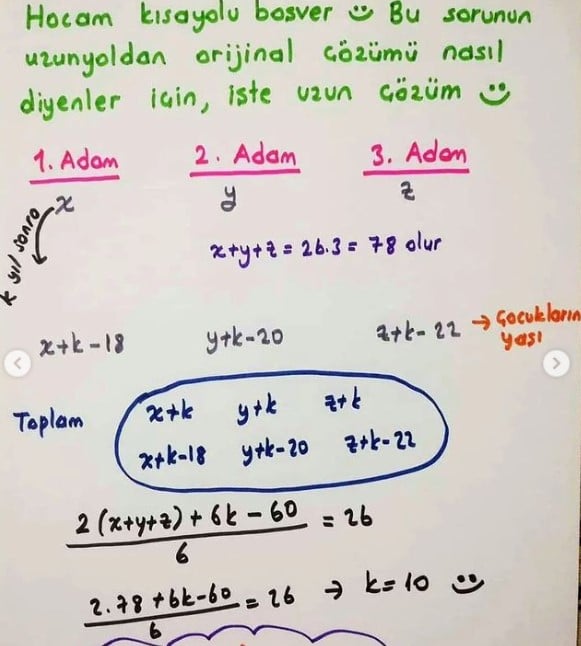 Hocam kısayolu boşver Bu sorunun
uzunyoldan orijinal çözümü nasıl
diyenler için, işte uzun çözüm
1. Adam 2. Adam 3. Adam
x y z
k yıl sonra
x+y+z = 26.3 = 78 olur
x+k-18 y+k-20 z+k-22 → Çocukların
yaşı
Toplam x+k y+k z+k
x+k-18 y+k-20 z+k-22
2(x+y+z) + 6k - 60 = 26
6
2.78 + 6k-60 = 26 → k=10
6